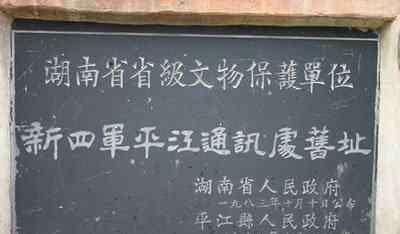 湖南省省級文物保護單位
新四軍平江通訊處舊址
湖南省人民政府
一九八三年十月十日公布
平江縣人民政府